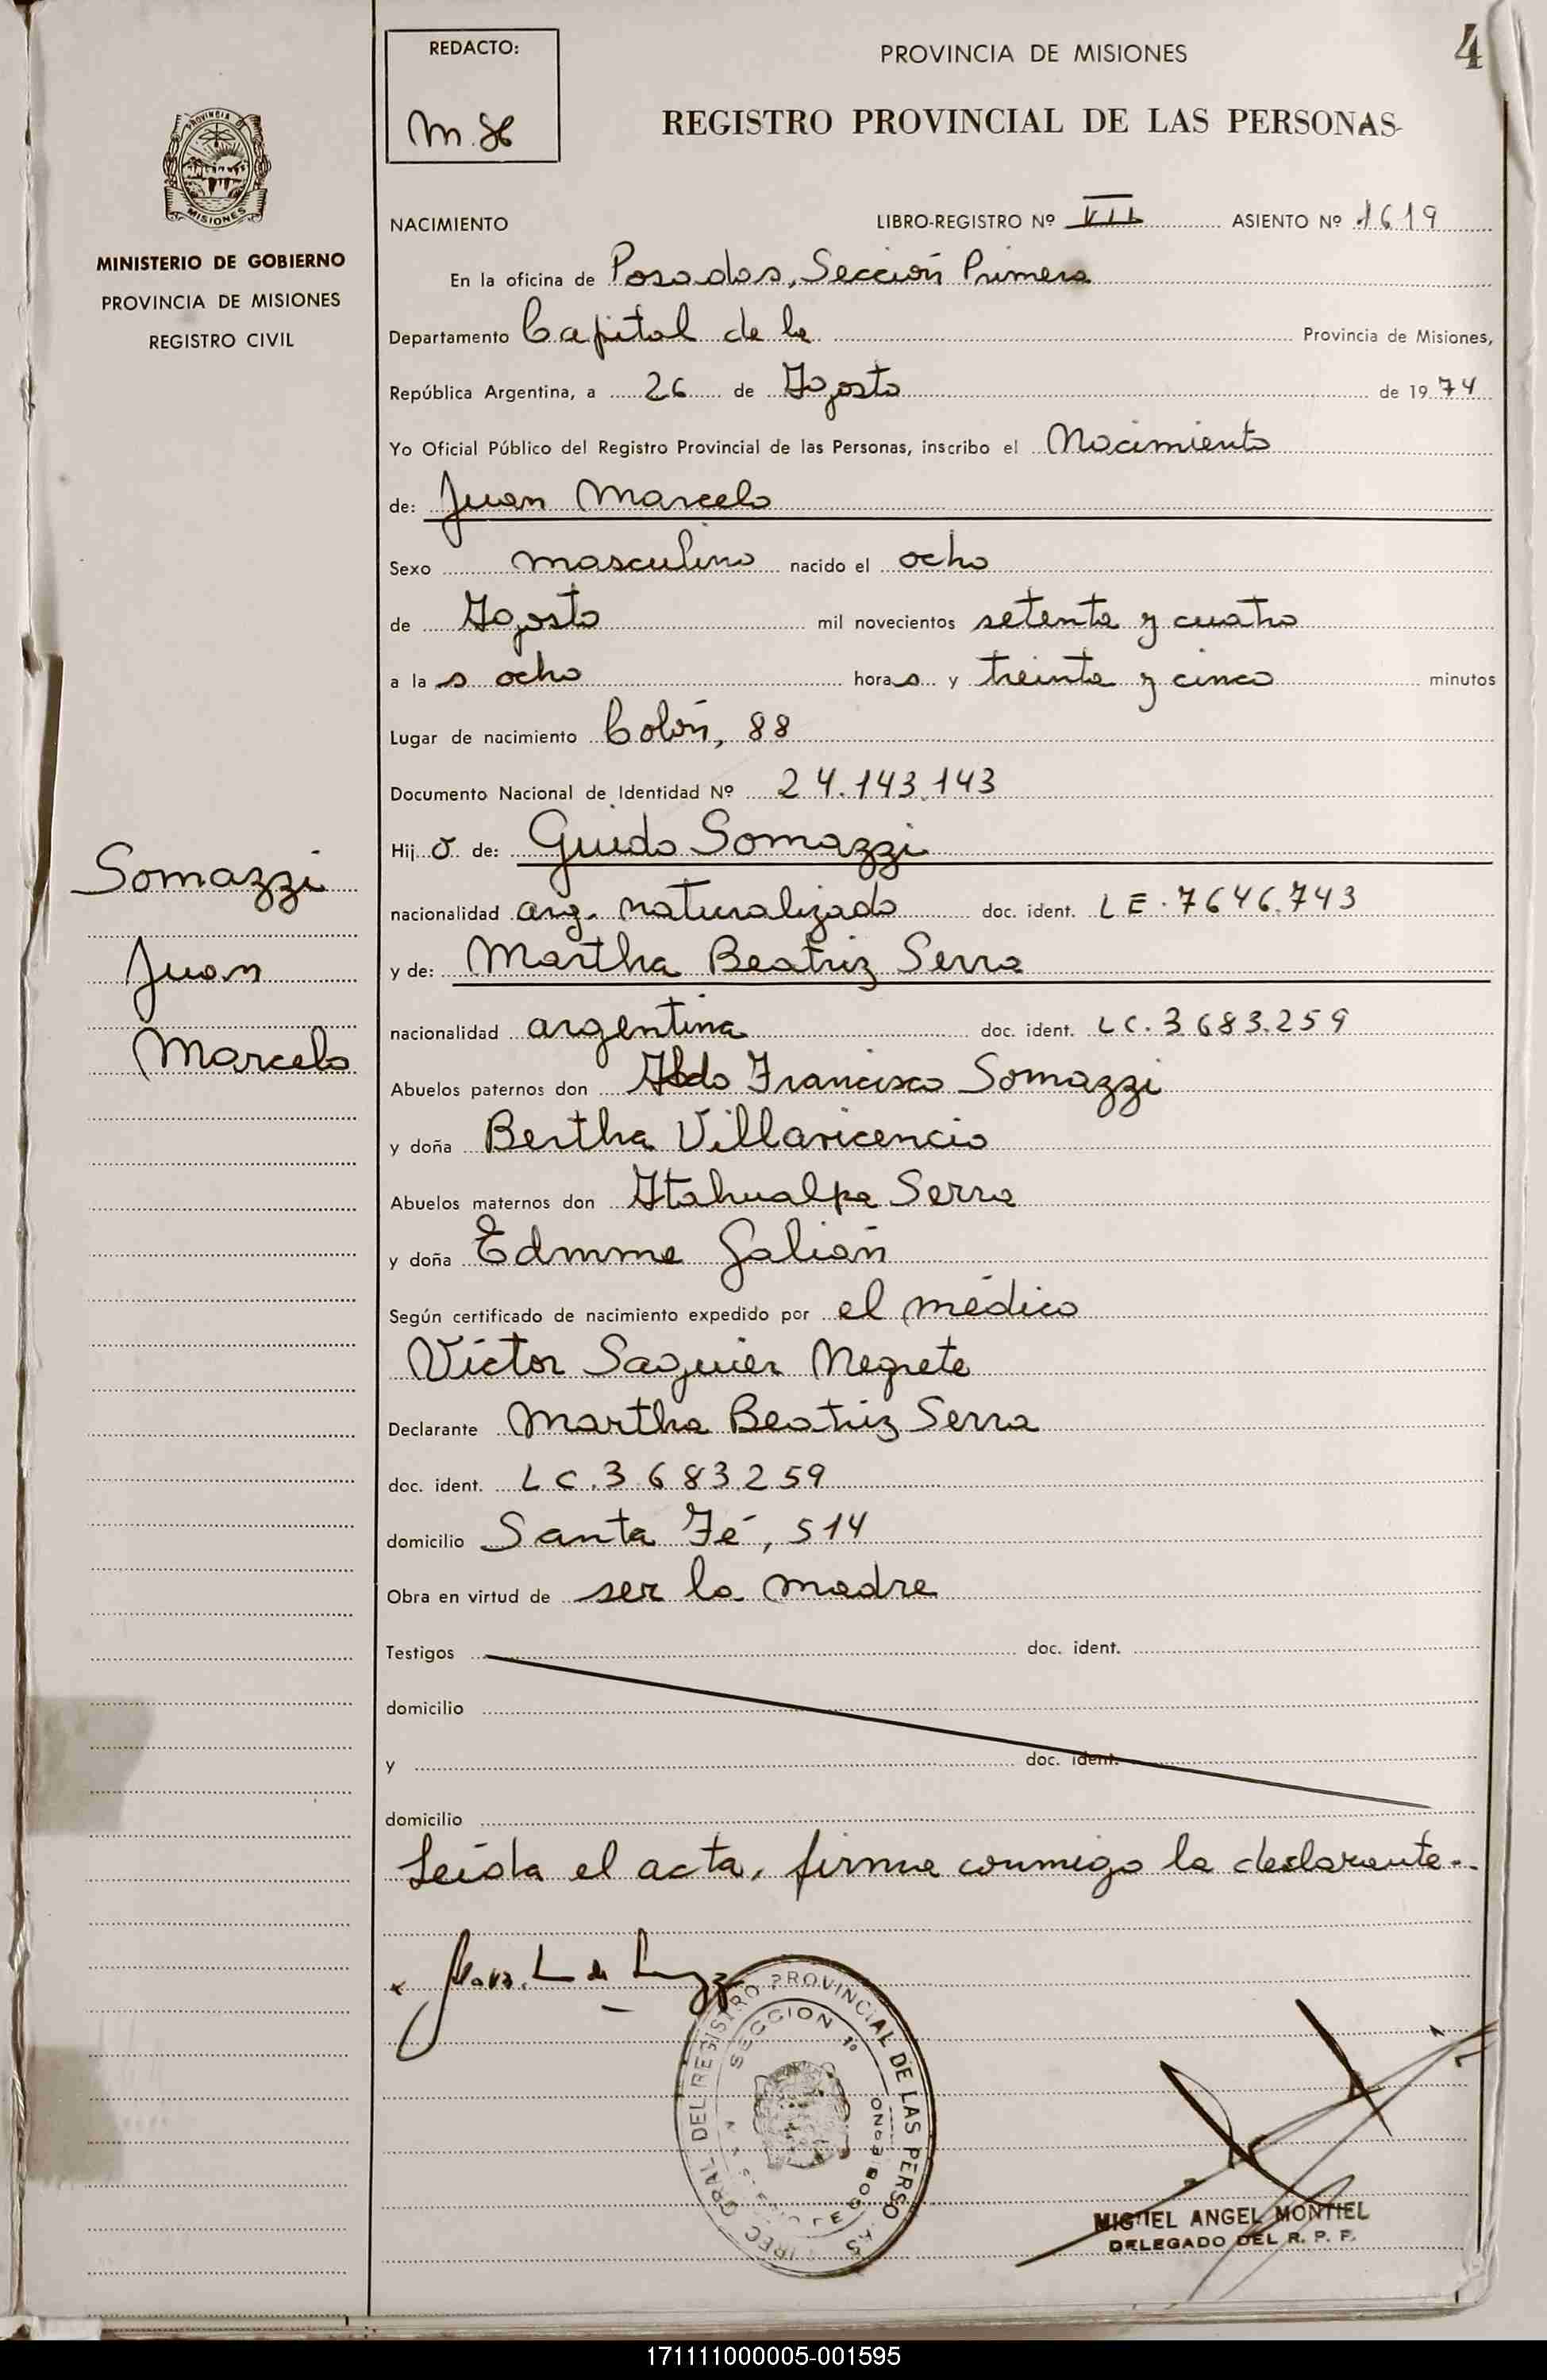 4
REDACTO:
PROVINCIA DE MISIONES
REGISTRO PROVINCIAL DE LAS PERSONAS
PROVINCIA DE
MISIONES
MINISTERIO DE GOBIERNO
PROVINCIA DE MISIONES
REGISTRO CIVIL
NACIMIENTO LIBRO-REGISTRO Nº VII ASIENTO Nº 1619
En la oficina de Posadas, Sección Primera
Departamento Capital de la Provincia de Misiones,
República Argentina, a 26 de Agosto de 1974
Yo Oficial Público del Registro Provincial de las Personas, inscribo el Nacimiento
de: Juan Marcelo
Sexo masculino nacido el ocho
de Agosto mil novecientos setenta y cuatro
a las ocho horas y treinta y cinco minutos
Lugar de nacimiento Colón, 88
Documento Nacional de Identidad Nº 24.143.143
Hijo de: Guido Somazzi
nacionalidad arg. naturalizado doc. ident. LE.7646.743
y de: Martha Beatriz Serra
nacionalidad argentina doc. ident. LC.3683.259
Abuelos paternos don Aldo Francisco Somazzi
y doña Bertha Villavicencio
Abuelos maternos don Atahualpa Serra
y doña Edmme Galián
Según certificado de nacimiento expedido por el médico
Víctor Saguier Negrete
Declarante Martha Beatriz Serra
doc. ident. LC.3683.259
domicilio Santa Fé, 514
Obra en virtud de ser la madre
Testigos doc. ident.
domicilio
y doc. ident.
domicilio
Leída el acta, firma conmigo la declarante.-
Somazzi
Juan
Marcelo
DIREC. GRAL. DEL REGISTRO PROVINCIAL DE LAS PERSONAS
SECCION 1º
MIGUEL ANGEL MONTIEL
DELEGADO DEL R. P. P.
171111000005-001595